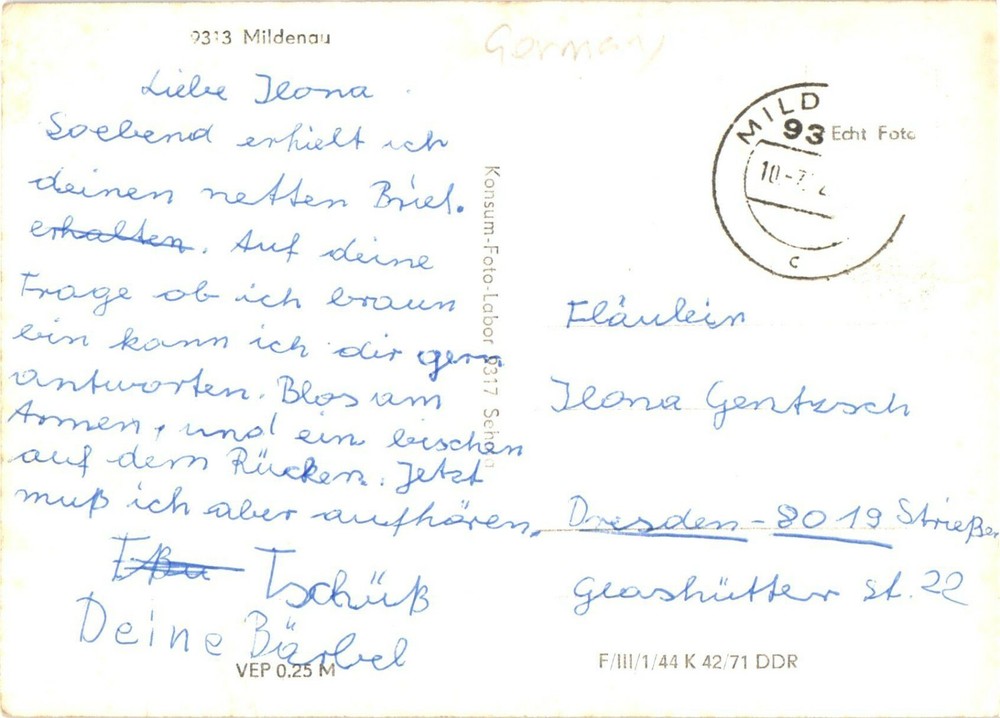 9313 Mildenau
Germany
Liebe Ilona
Soebend erhielt ich
deinen netten Brief.
erhalten. Auf deine
Frage ob ich braun
bin kann ich dir gern
antworten. Blos am
Armen, und ein bischen
auf dem Rücken. Jetzt
muß ich aber aufhören.
Tschüß
Deine Bärbel
VEP 0.25 M
Konsum-Foto-Labor 9317 Sehma
MILD
93
Echt Foto
10.-7.
c
Fläulein
Ilona Gentzsch
Dresden - 8019 Strießen
Glashütter St. 22
F/III/1/44 K 42/71 DDR